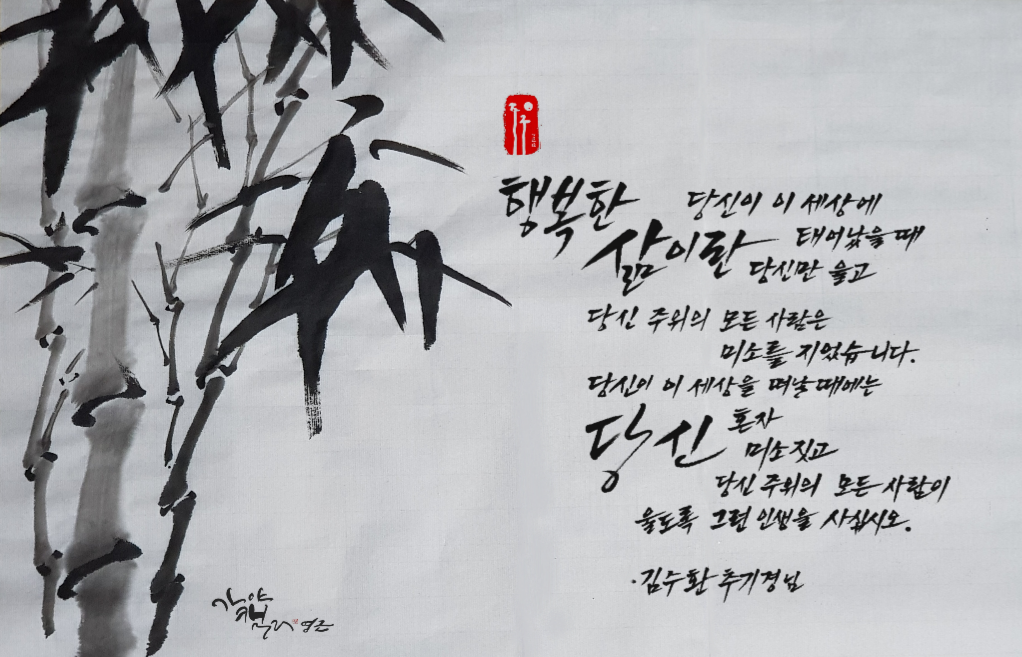 행복한
삶이란
당신이 이 세상에
태어났을 때
당신만 울고
당신 주위의 모든 사람은
미소를 지었습니다.
당신이 이 세상을 떠날 때에는
당신 혼자
미소짓고
당신 주위의 모든 사람이
울도록 그런 인생을 사십시오.
·김수환 추기경님